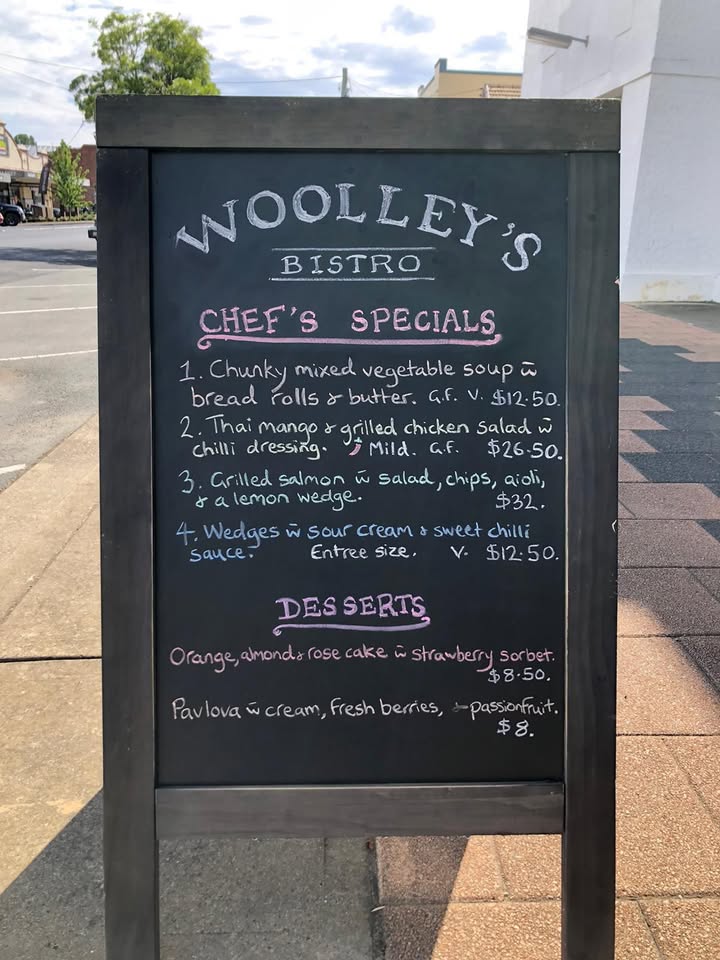 WOOLLEY'S
BISTRO
CHEF'S SPECIALS
1. Chunky mixed vegetable soup w̄
bread rolls & butter. G.F. V. $12.50.
2. Thai mango & grilled chicken salad w̄
chilli dressing. Mild. G.F. $26.50.
3. Grilled salmon w̄ salad, chips, aioli,
& a lemon wedge. $32.
4. Wedges w̄ sour cream & sweet chilli
sauce. Entree size. V. $12.50.
DESSERTS
Orange, almond & rose cake w̄ strawberry sorbet.
$8.50.
Pavlova w̄ cream, fresh berries, & passionfruit.
$8.